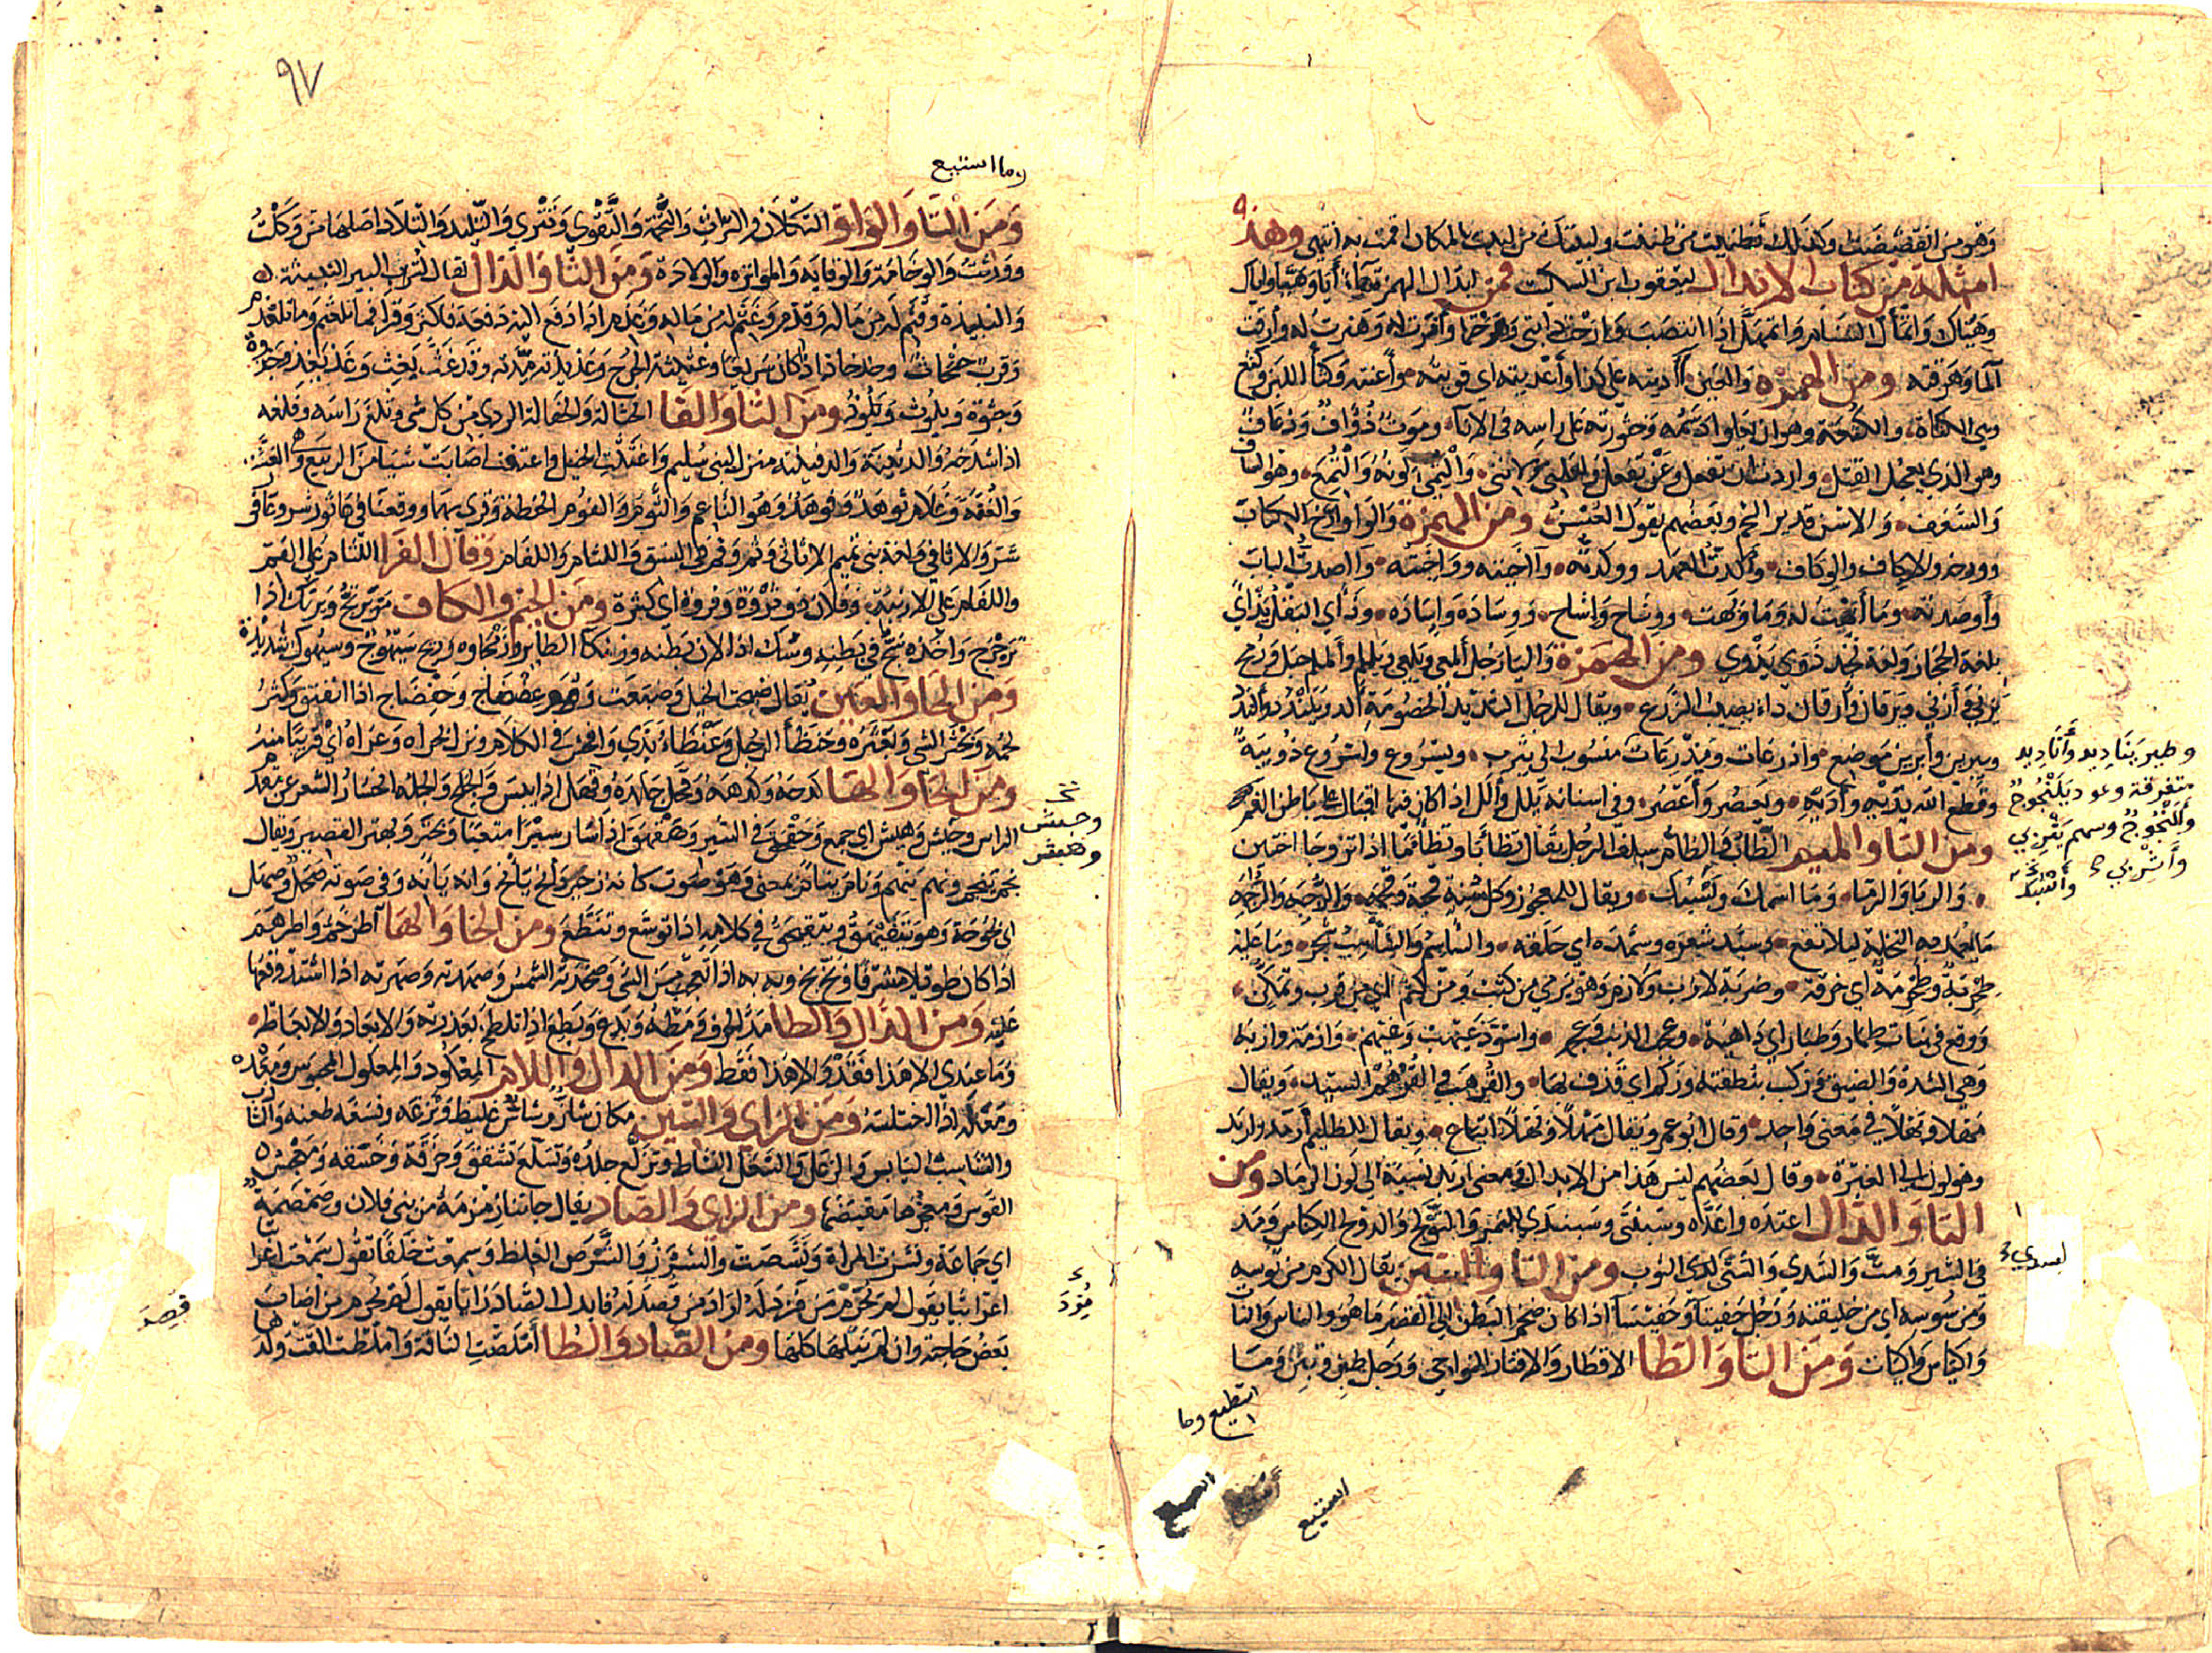 وهو من القضضت وكذلك تظنيت من ظننت ولبيك من البت بالمكان اقمت به انتهى وهذه
امثلة من كتاب الابدال ليعقوب ابن السكيت فمن ابدال الهمزة هاء أيا وهيا واياك
وهياك واتمأل السنام واتمهل اذا انتصب وارحت دابتي وهرحتها وأنرت له وهنرت له وأرقت
الما وهرقته ومن الهمزة والعين آديته على كذا وأعديته اي قويته موأعنته وكثأ اللبن وكثع
وهي الكثأة والكثعة وهو ان يعلوا دسمه وخثورته على راسه في الاناء وموت ذؤاف وذعاف
وهو الذي يعجل القتل واردت ان تفعل وعن تفعل ولعلني ولأنني والتمي لونه والتمع وهو الساف
والسعف والاسن قديم الشحم وبعضهم يقول العسن ومن الهمزة والواو ارخ الكتاب
وورخه والاكاف والوكاف وأكدت العهد ووكدته وآخيته وواخيته وآصدت الباب
وأوصدته وما أبهت له وما وبهت ووشاح واشاح ووسادة واسادة وذأي البقل يذأي
بلغة الحجاز ولغة نجد ذوي يذوي ومن الهمزة واليا رجل ألمعي ويلمعي ويلملم وألملم جبل ورمح
يزني وأزني ويرقان وأرقان داء يصيب الزرع ويقال للرجل الشديد الخصومة ألد ويلندد وألندد
ويبرين وأبرين موضع واذرعات ويذرعات منسوب الى يثرب ويسروع واسروع دويبة
وقطع الله يديه وأديه ويعصر وأعصر وفي اسنانه يلل وألل اذا كان فيها اقبال على باطن الفم
ومن البا والميم الظأب والظأم سلف الرجل يقال تظأبا وتظأما اذا تزوجا اختين
والربا والرما وما اسمك وبا سمك ويقال للعجوز وكل مسنة قحبة وقحمة والرجبة والرجمة
ما تعمد به النخلة ليلا تقع وسبد شعره وسمده اي حلقه والساسم والساسب شجر وما عليه
طحربة وطحرمة اي خرقة وضربة لازب ولازم وهو يرمي من كثب ومن كثم اي من قرب وتمكن
ووقع في بنات طمار وطبار اي داهية وعجب الذنب وعجم واسود غيهب وغيهم وازمة وازبة
وهي الشدة والضيق وزكب بنطفته وزكم اي قذف بها والقرهب والقرهم السيد ويقال
مهلا وبهلا في معنى واحد وقال ابو عمرو يقال مهلا وبهلا اتباع ويقال للظليم أرمد وأربد
وهو لون الى الغبرة وقال بعضهم ليس هذا من الابدال ومعنى اربد نسبة الى لون الرماد ومن
التا والدال اعتده واعده وسبنتى وسبندى للنمر والتولج والدولج الكناس ومد
في السير ومت والسدى والستى لسدى الثوب ومن التا والسين يقال الكرم من توسه
ومن سوسه اي من خليقته ورجل حفيتأ وحفيسأ اذا كان ضخم البطن الى القصر ما هو والناس والنات
واكياس واكيات ومن التا والطا الاقطار والاقتار النواحي ورجل طبن وتبن وما
استطيع وما
استيع
وطير يناديد وأناديد
متفرقة وعود يلنجوج
وألنجوج وسهم يثربي
وأثربي
لسدي
٩٧
وما استيع
ومن التا والواو التكلان والتراث والتخمة والتقوى وتترى والتليد والتلاد اصلها من وكلت
وورثت والوخامة والوقاية والمواترة والولادة ومن الثا والذال يقال لتراب البير النبيثة
والنبيذة وقثم له من ماله وقذم وغثم له من ماله وغذم اذا دفع اليه دفعة فاكثر وقرأ فما تلعثم وما تلعذم
وقرب حثحاث وحذحاذ اذا كان سريعا وغثيثة الجرح وغذيذته مدته وقد غث يغث وغذ يغذ وجذوة
وجثوة ويلوث ويلوذ ومن الثا والفا الحثالة والحفالة الردي من كل شي وثلغ راسه وفلغه
اذا شدخه والدثينة والدفينة منزل لبني سليم واغتثت الخيل واغتفت اصابت شيا من الربيع وهي الغثة
والغفة وغلام ثوهد وفوهد وهو الناعم والثوم والفوم الحنطة وقرئ بهما ووقعنا في عاثور شر وعافور
شر والاثافي ولغة بني تميم الاثاثي وثم وفم في النسق واللثام واللفام وقال الفرا اللثام على الفم
واللفام على الارنبة وفلان ذو ثروة وفروة اي كثرة ومن الجيم والكاف مر يرتج ويرتك اذا
ترجرج واخذه سج في بطنه وسك اذا لان بطنه وزمكا الطاير وزمجاوه وريح سيهوج وسيهوك شديدة
ومن الحا والعين يقال ضبحت الخيل وضبعت وهو عفضاج وحفضاج اذا انفتق وكثر
لحمه وبحثر الشي وبعثره وحنظأ الرجل وعنظأ بذي وافحش في الكلام ونزل بحراه وعراه اي قريبا منه
ومن الحا والها كدحه وكدهه وقحل جلده وقهل اذا يبس والجلح والجله انحسار الشعر عن مقدم
الراس وحبش وهبش اي جمع وحقحق في السير وهقهق اذا سار سيرا متعبا وبحتر وبهتر القصير ويقال
نحم ينحم ونهم ينهم ونأم ينأم بمعنى وهو صوت كانه زحير وأنح يأنح وأنه يأنه وفي صوته صحل وصهل
اي بحوحة وهو يتفيهق ويتفيحق في كلامه اذا توسع وتنطع ومن الخا والها اطرخم واطرهم
اذا كان طويلا مشرقا وبخ بخ وبه به اذا تعجب من الشي وصخدته الشمس وصهدته وصهرته اذا اشتد وقعها
عليه ومن الدال والطا مد الحرف ومطه وبدغ وبطغ اذا تلطخ بعذرته والابعاد والابعاط
وما عندي الا هذا فقد والا هذا فقط ومن الدال واللام المعكود والمعكول المحبوس ومعده
ومعله اذا اختلسه ومن الزاي والسين مكان شأز وشأس غليظ ونزغه ونسغه طعنه والشازب
والشاسب اليابس والزعل والسعل النشاط وتزلع جلده وتسلع تشقق وخزقه وخسقه ومعجس
القوس ومعجزها مقبضها ومن الزاي والصاد يقال جاتنا زمزمة من بني فلان وصمصمة
اي جماعة ونشزت المراة ونشصت والشرز والشرص الغلظ وسمعت خلفا يقول سمعت اعرا
ابيا يقول لم يحرم من فزد له اراد من فصد له فابدل الصاد زايا يقول لم يحرم من اصاب
بعض حاجته وان لم ينلها كلها ومن الصاد والطا أملصت الناقة واملطت القت ولدها
وحبش
وهبش